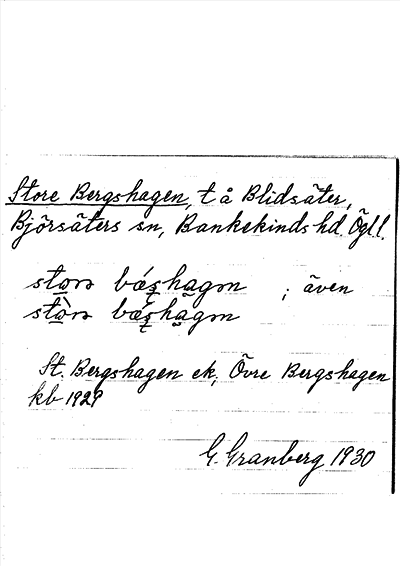 Store Bergshagen, t å Blidsäter,
Björsäters sn, Bankekinds hd. Ögl.l.
; även
St. Bergshagen ek, Övre Bergshagen
kb 1929
G. Granberg 1930